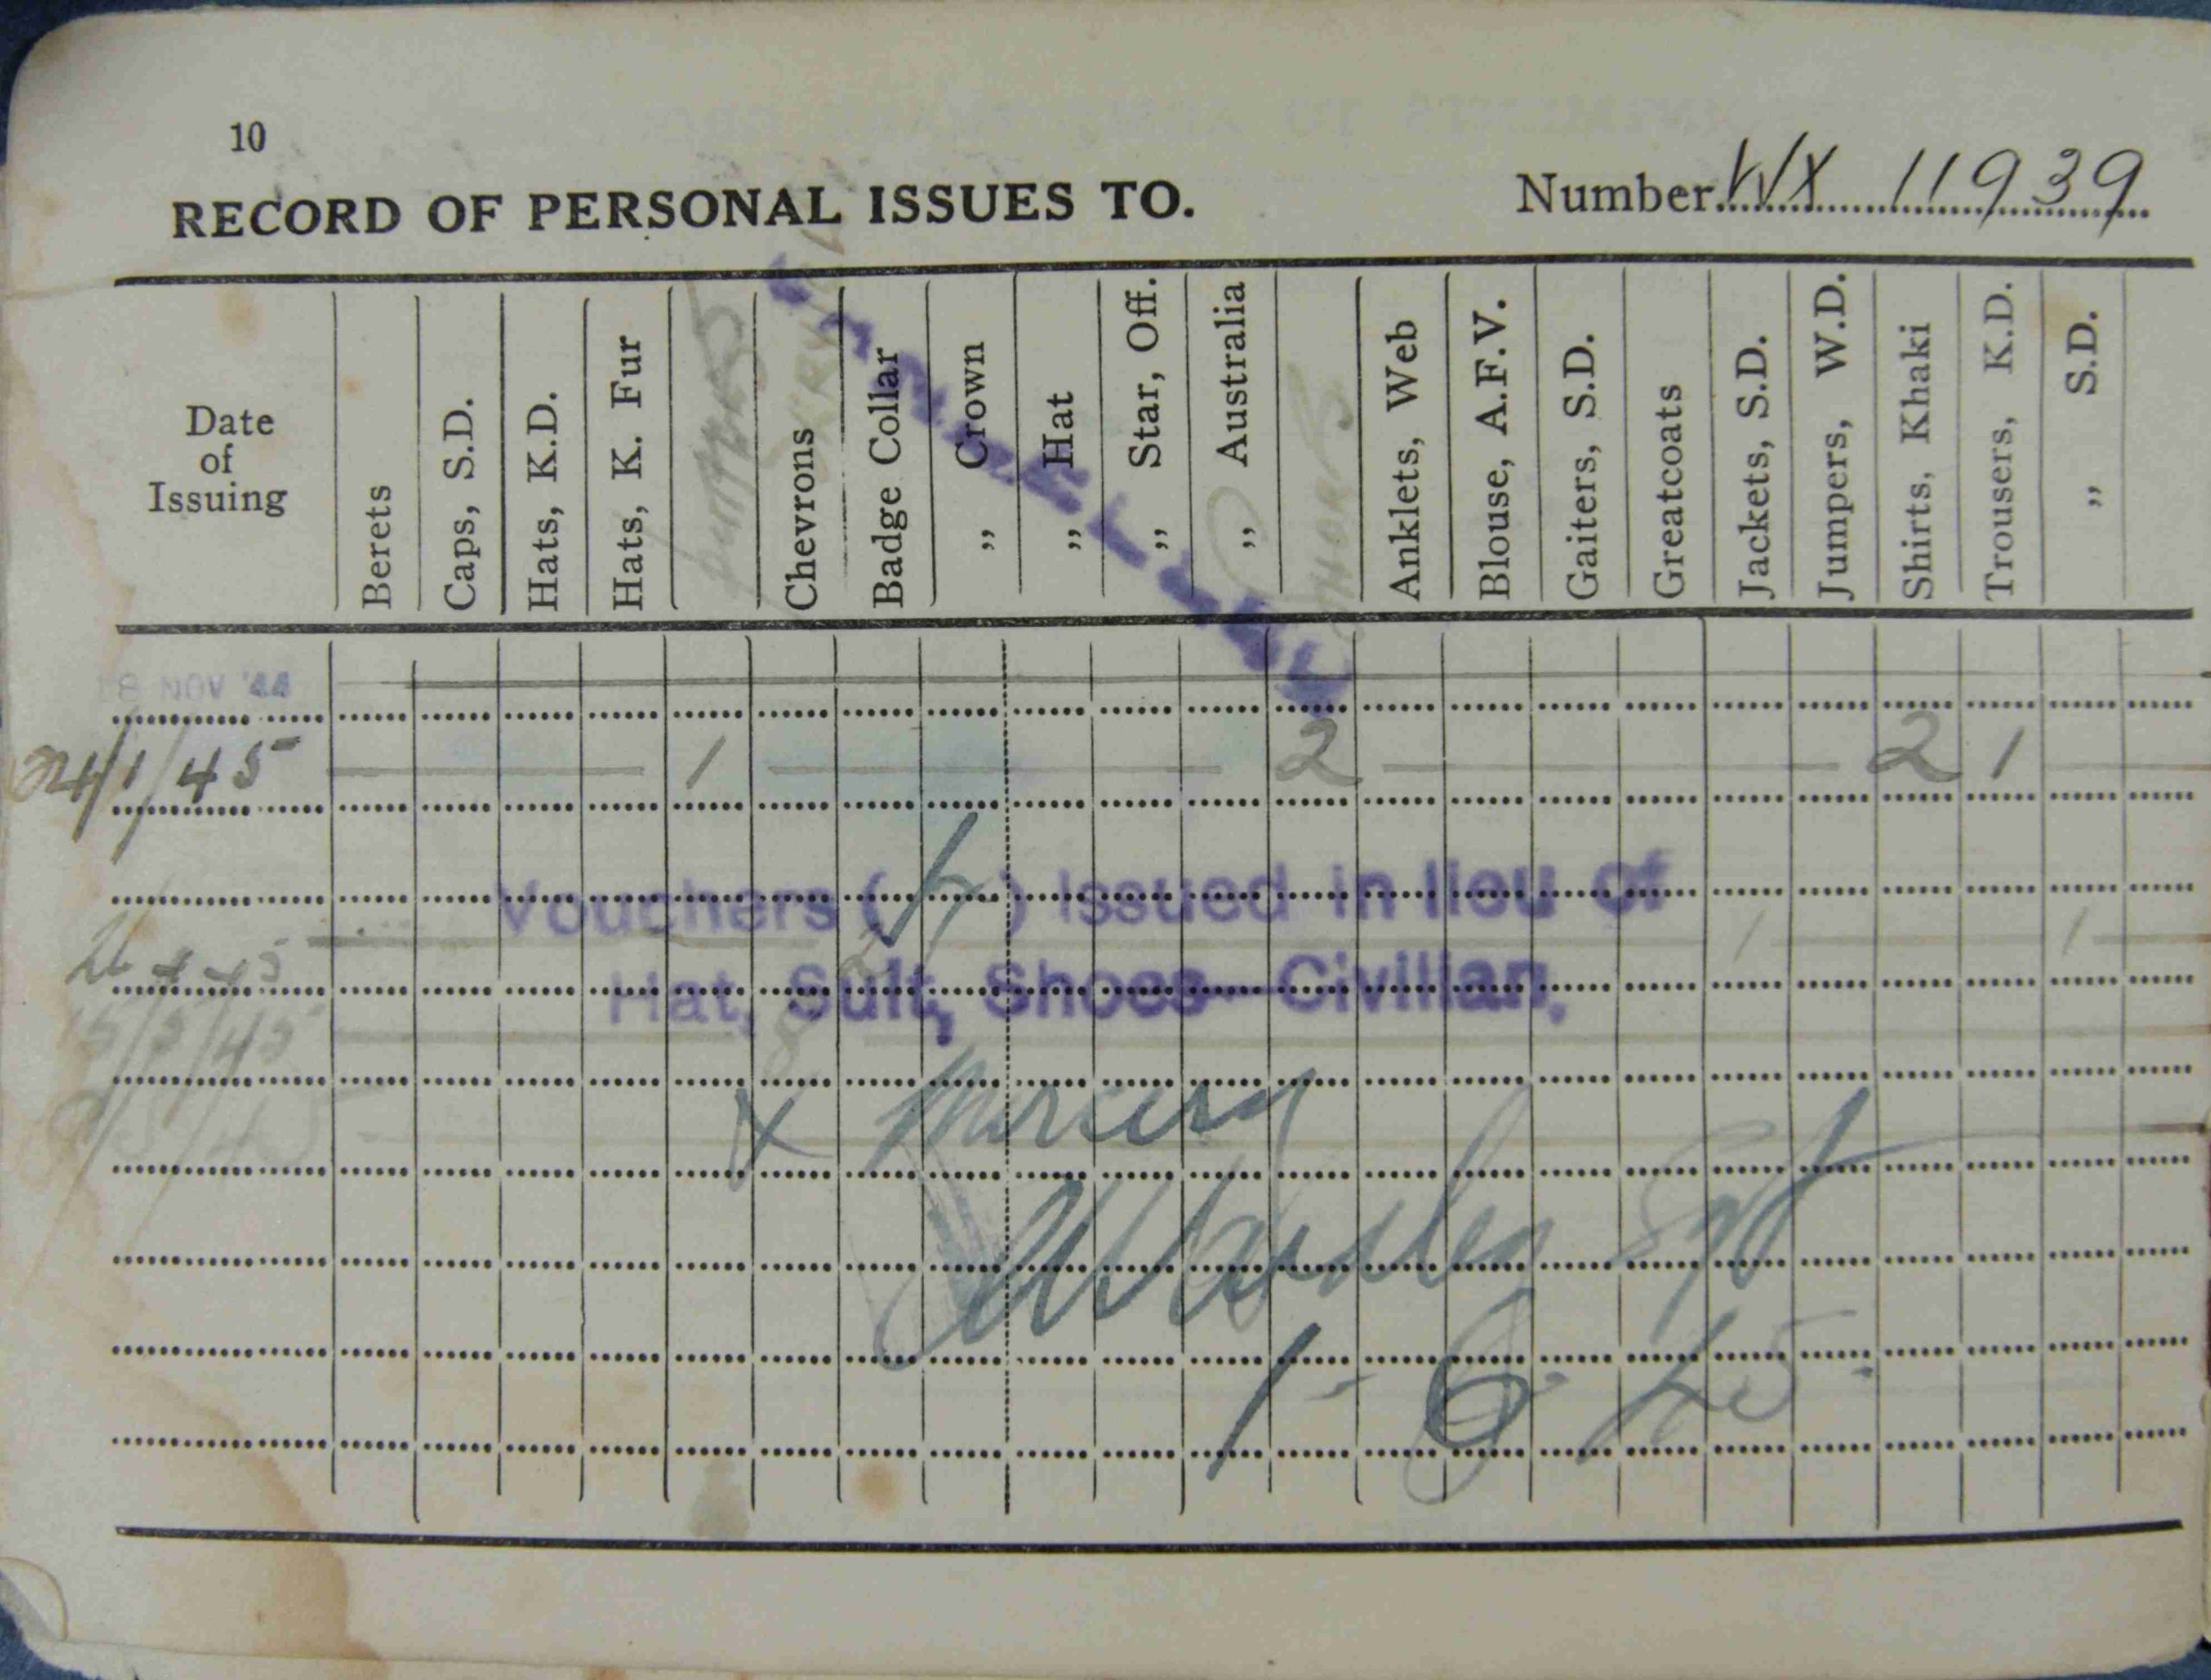 10
RECORD OF PERSONAL ISSUES TO.
Number WX 11939
Date of Issuing
Berets
Caps, S.D.
Hats, K.D.
Hats, K. Fur
Chevrons
Badge Collar
„ Crown
„ Hat
„ Star, Off.
„ Australia
Anklets, Web
Blouse, A.F.V.
Gaiters, S.D.
Greatcoats
Jackets, S.D.
Jumpers, W.D.
Shirts, Khaki
Trousers, K.D.
„ S.D.
NOV '44
24/1/45 1 2 2 1
Vouchers ( ) Issued in lieu of
1 1
Hat, Suit, Shoes—Civilian.
15/5/45
Sgt
1-6-45